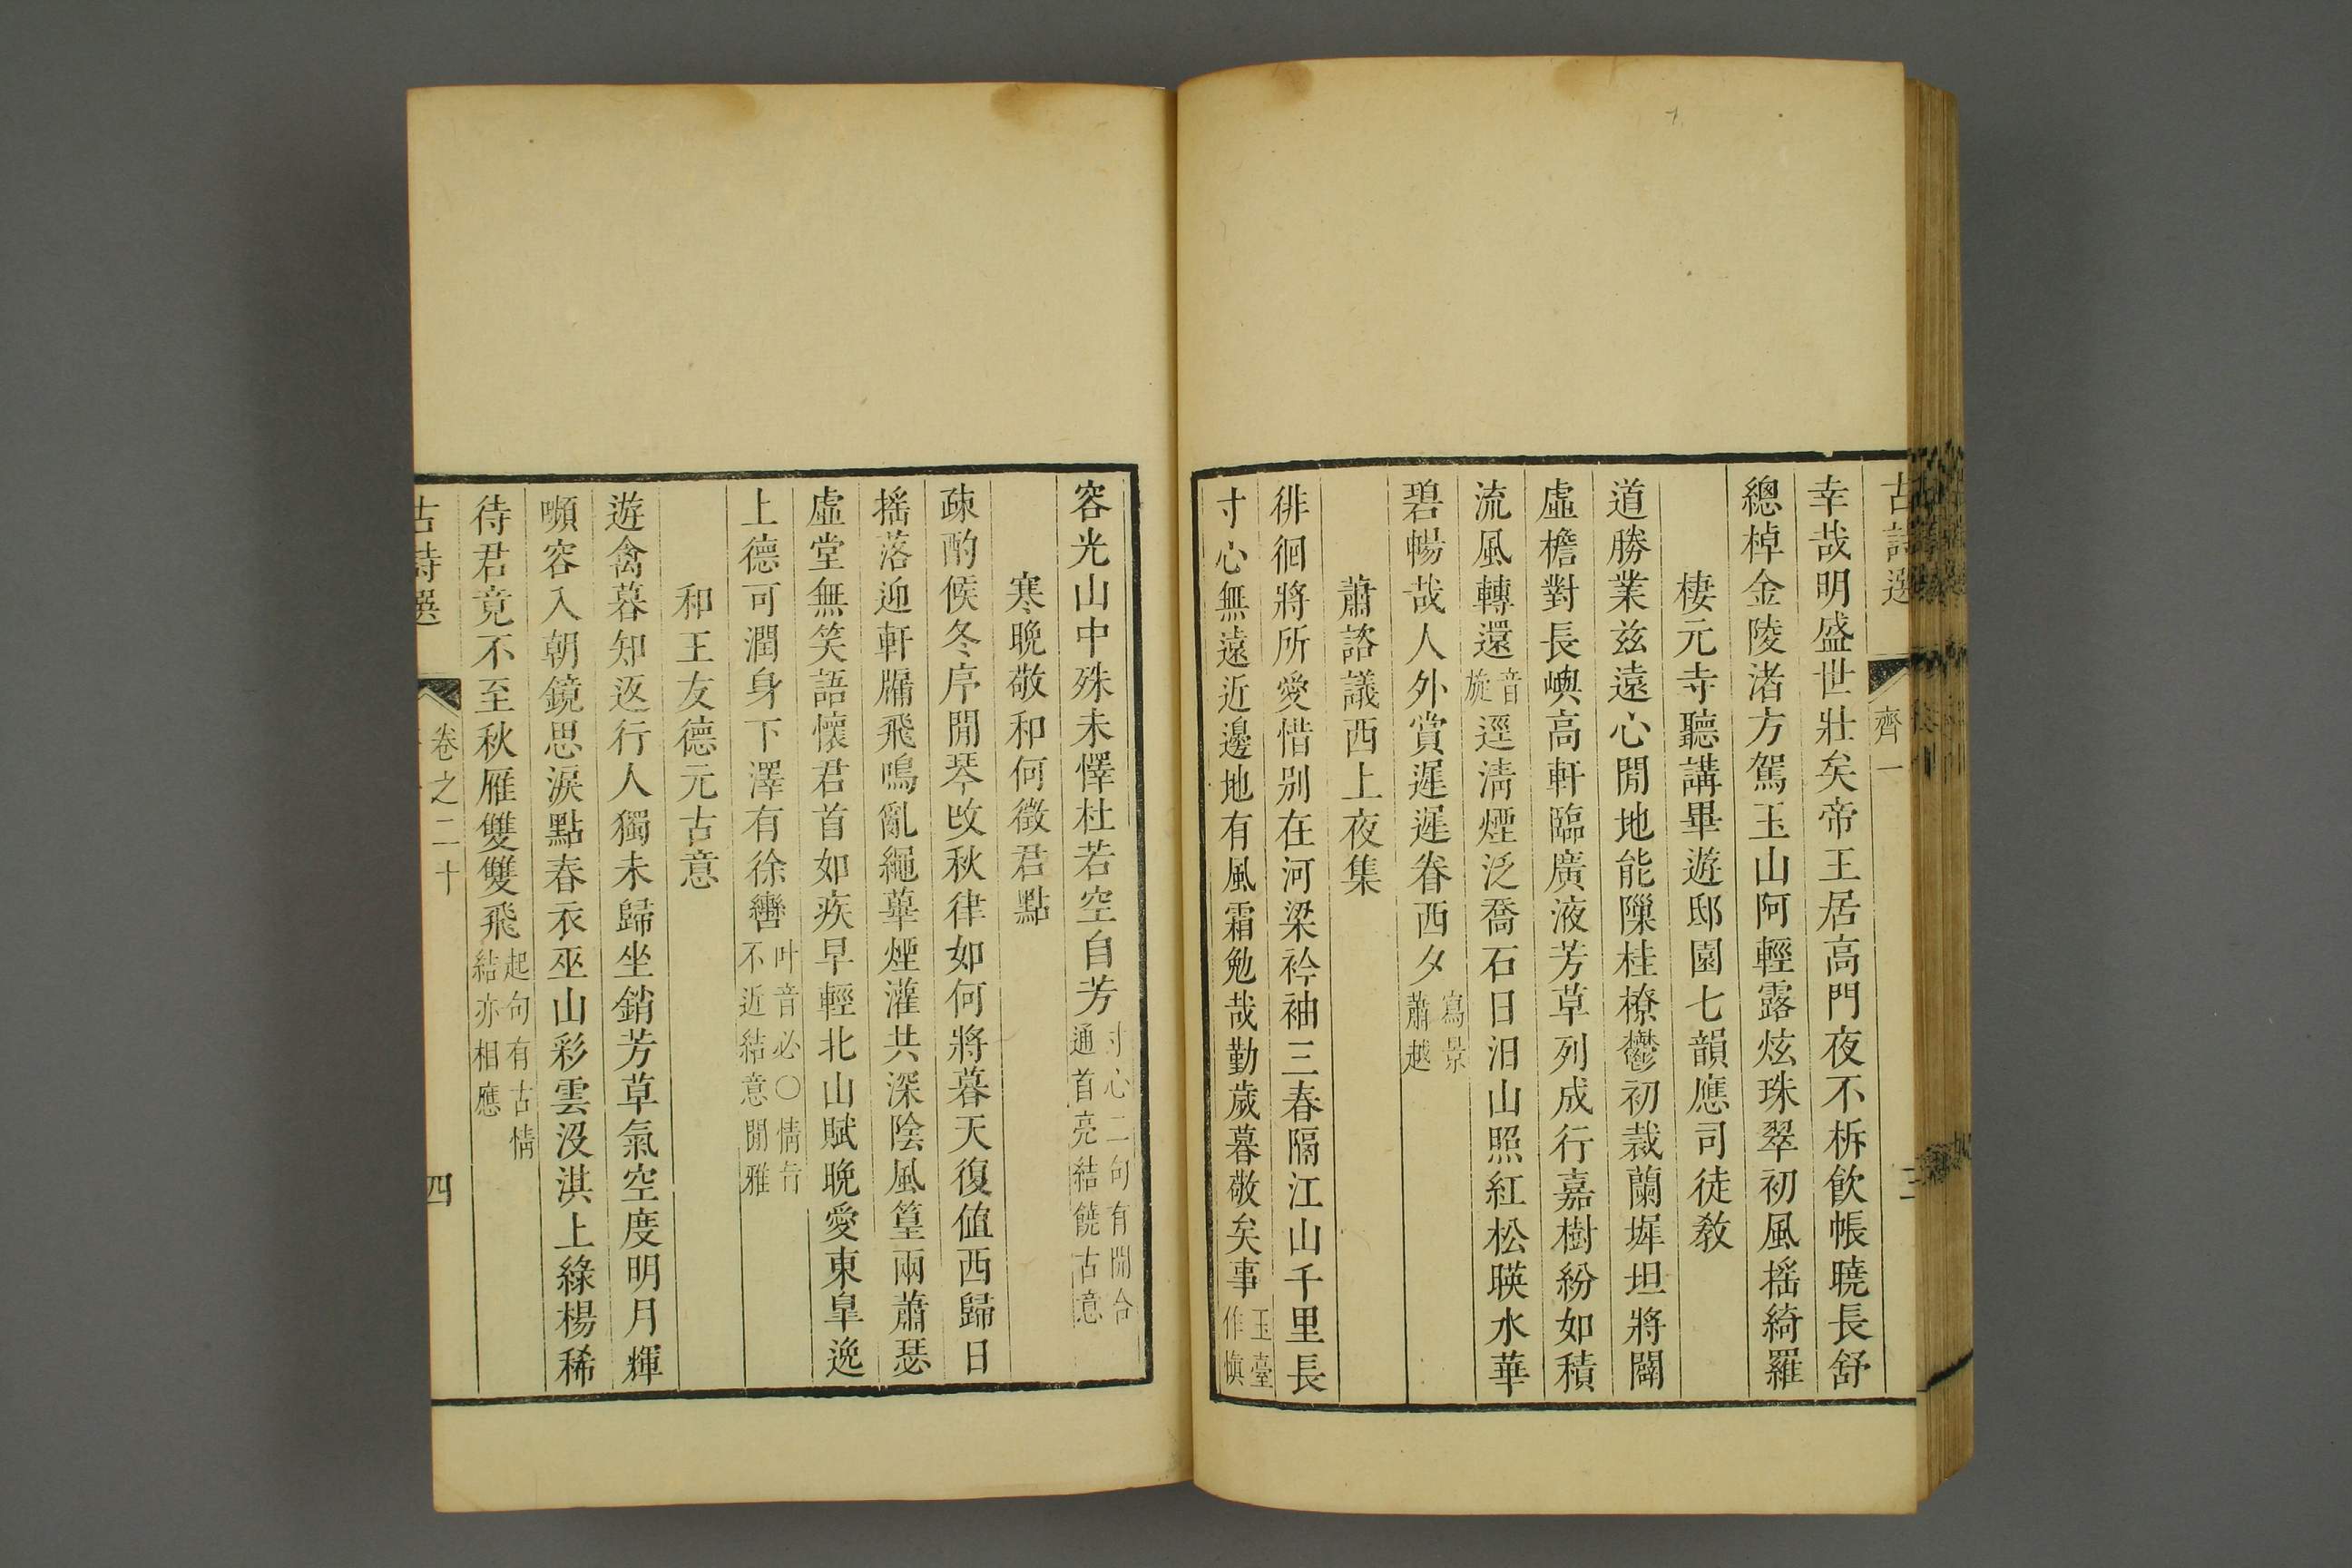 古詩選 齊一 三
幸哉明盛世壯矣帝王居高門夜不柝飲帳曉長舒
總棹金陵渚方駕玉山阿輕露炫珠翠初風摇綺羅
棲元寺聽講畢遊邸園七韻應司徒敎
道勝業兹遠心閒地能隟桂橑鬱初裁蘭墀坦將闢
虛檐對長嶼高軒臨廣液芳草列成行嘉樹紛如積
流風轉還音旋逕淸煙泛喬石日汨山照紅松暎水華
碧暢哉人外賞遲遲眷西夕寫景蕭越
蕭諮議西上夜集
徘徊將所愛惜别在河梁衿袖三春隔江山千里長
寸心無遠近邊地有風霜勉哉勤歲暮敬矣事玉臺作愼
容光山中殊未懌杜若空自芳寸心二句有開合通首亮結饒古意
寒晩敬和何徵君點
疎酌候冬序閒琴攺秋律如何將暮天復值西歸日
摇落迎軒牖飛鳴亂繩蓽煙灌共深陰風篁兩蕭瑟
虛堂無笑語懷君首如疾早輕北山賦晩愛東臯逸
上德可潤身下澤有徐轡叶音必〇情旨不近結意閒雅
和王友德元古意
遊禽暮知返行人獨未歸坐銷芳草氣空度明月輝
嚬容入朝鏡思淚點春衣巫山彩雲沒淇上綠楊稀
待君竟不至秋雁雙雙飛起句有古情結亦相應
古詩選 卷之二十 四